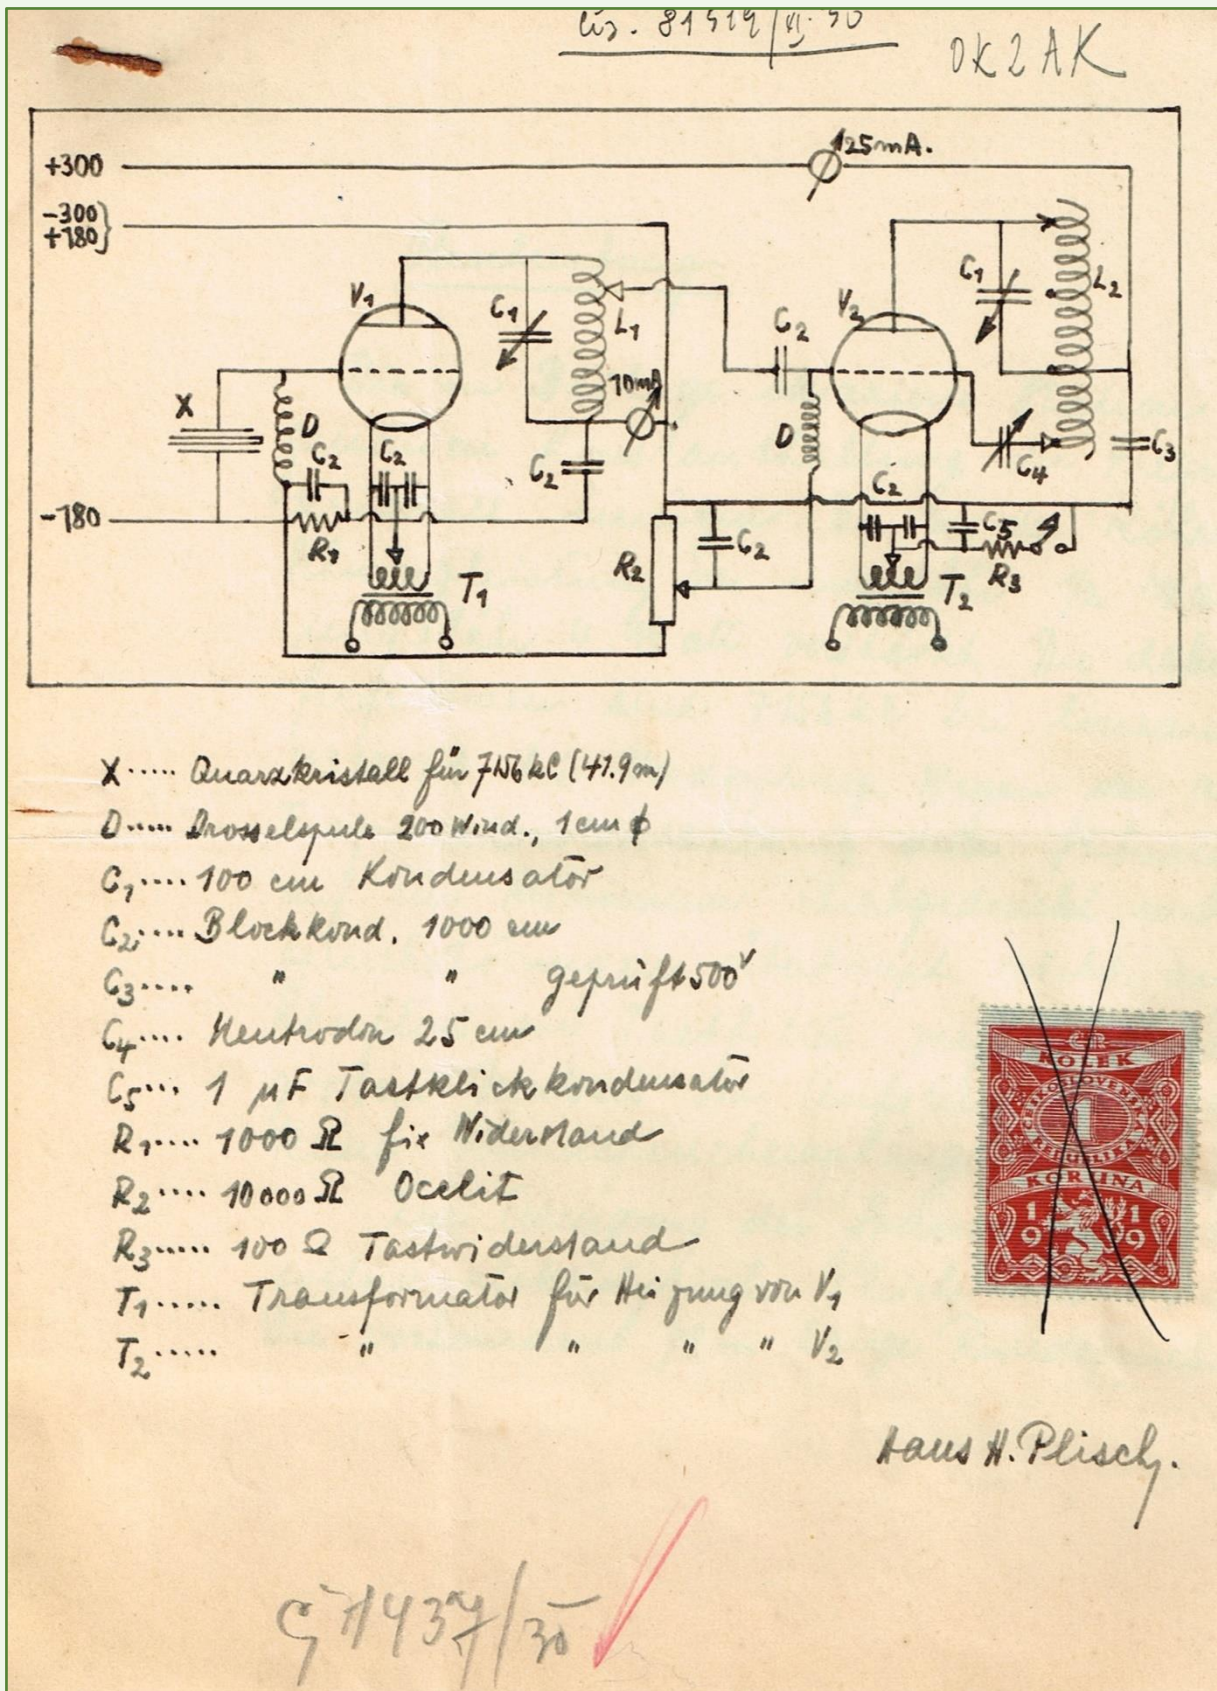 čís. 81519/XI-30
OK2AK
+300
125mA.
-300
+180
V1
C1
L1
10mA
C2
V2
C1
L2
X
D
C2
C2
C2
D
C4
C3
-180
R1
T1
R2
C2
C2
C5
R3
T2
X ..... Quarzkristall für 7156 kC (41.9m)
D .... Drosselspule 200 Wind., 1cm ϕ
C1 .... 100 cm Kondensator
C2 .... Blockkond. 1000 cm
C3 .... " " geprüft 500V
C4 .... Neutrodon 25 cm
C5 ... 1 µF Tastklickkondensator
R1 .... 1000 Ω fix Widerstand
R2 .... 10000 Ω Ocelit
R3 ..... 100 Ω Tastwiderstand
T1 ..... Transformator für Heizung von V1
T2 ..... " " " " V2
KOLEK
ČESKOSLOVENSKÁ
1
REPUBLIKA
KORUNA
1919
Hans H. Plisch.